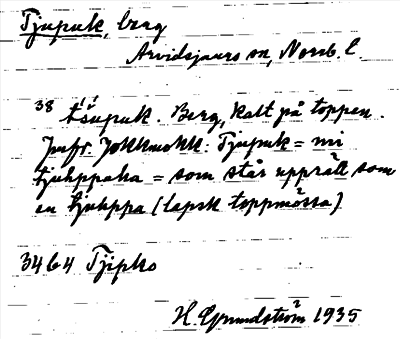 Tjupuk, berg
Arvidsjaurs sn, Norrb. l.
38 tšupuk. Berg, kalt på toppen.
Jmfr. Jokkmokk: Tjupuk = mi
tjuhppaka = som står upprätt som
en tjuhppa (lapsk toppmössa)
3464 Tjipko
H. Grundström 1935